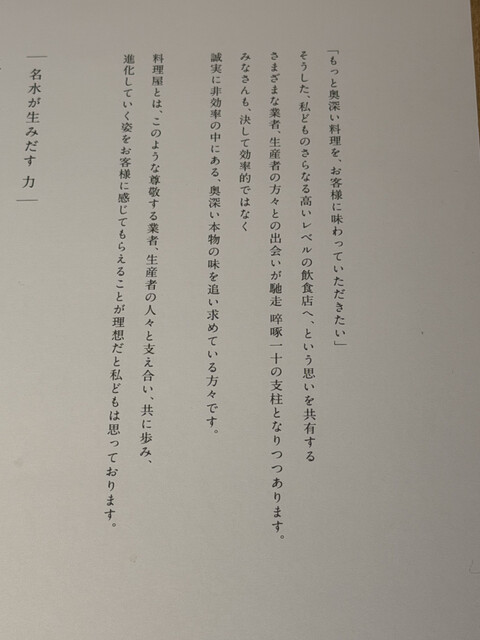 「もっと奥深い料理を、お客様に味わっていただきたい」
そうした、私どものさらなる高いレベルの飲食店へ、という思いを共有する
さまざまな業者、生産者の方々との出会いが馳走 啐啄一十の支柱となりつつあります。
みなさんも、決して効率的ではなく
誠実に非効率の中にある、奥深い本物の味を追い求めている方々です。
料理屋とは、このような尊敬する業者、生産者の人々と支え合い、共に歩み、
進化していく姿をお客様に感じてもらえることが理想だと私どもは思っております。
― 名水が生みだす 力 ―